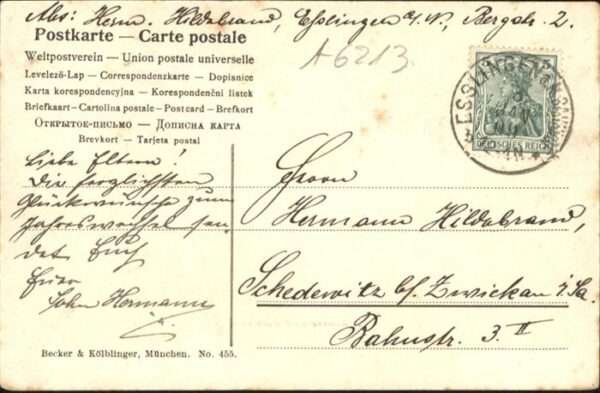 Abs: Herm. Hildebrand, Esslingen a/N., Bergstr. 2.
Postkarte — Carte postale
A6213
Weltpostverein — Union postale universelle
Levelező-Lap — Correspondenzkarte — Dopisnice
Karta korespondencyjna — Korespondenční listek
Briefkaart — Cartolina postale — Postcard — Brefkort
Открытое-письмо — Дописна карта
Brevkort — Tarjeta postal
ESSLINGEN
DEUTSCHES REICH
Liebe Eltern!
Die herzlichsten
Glückwünsche zum
Jahreswechsel sen-
det Euch
Euer
Sohn Hermann
Herrn
Hermann Hildebrand,
Schedewitz b/ Zwickau i. Sa.
Bahnstr. 3. II
Becker & Kölblinger, München. No. 455.